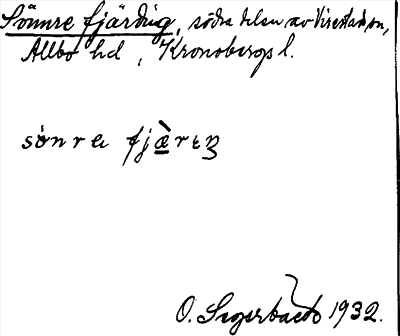 Sönnre fjärding, södra delen av Virestad sn,
Allbo hd, Kronobergs l.
sònra fjæ̀rɩŋ
O. Segerbäck 1932.